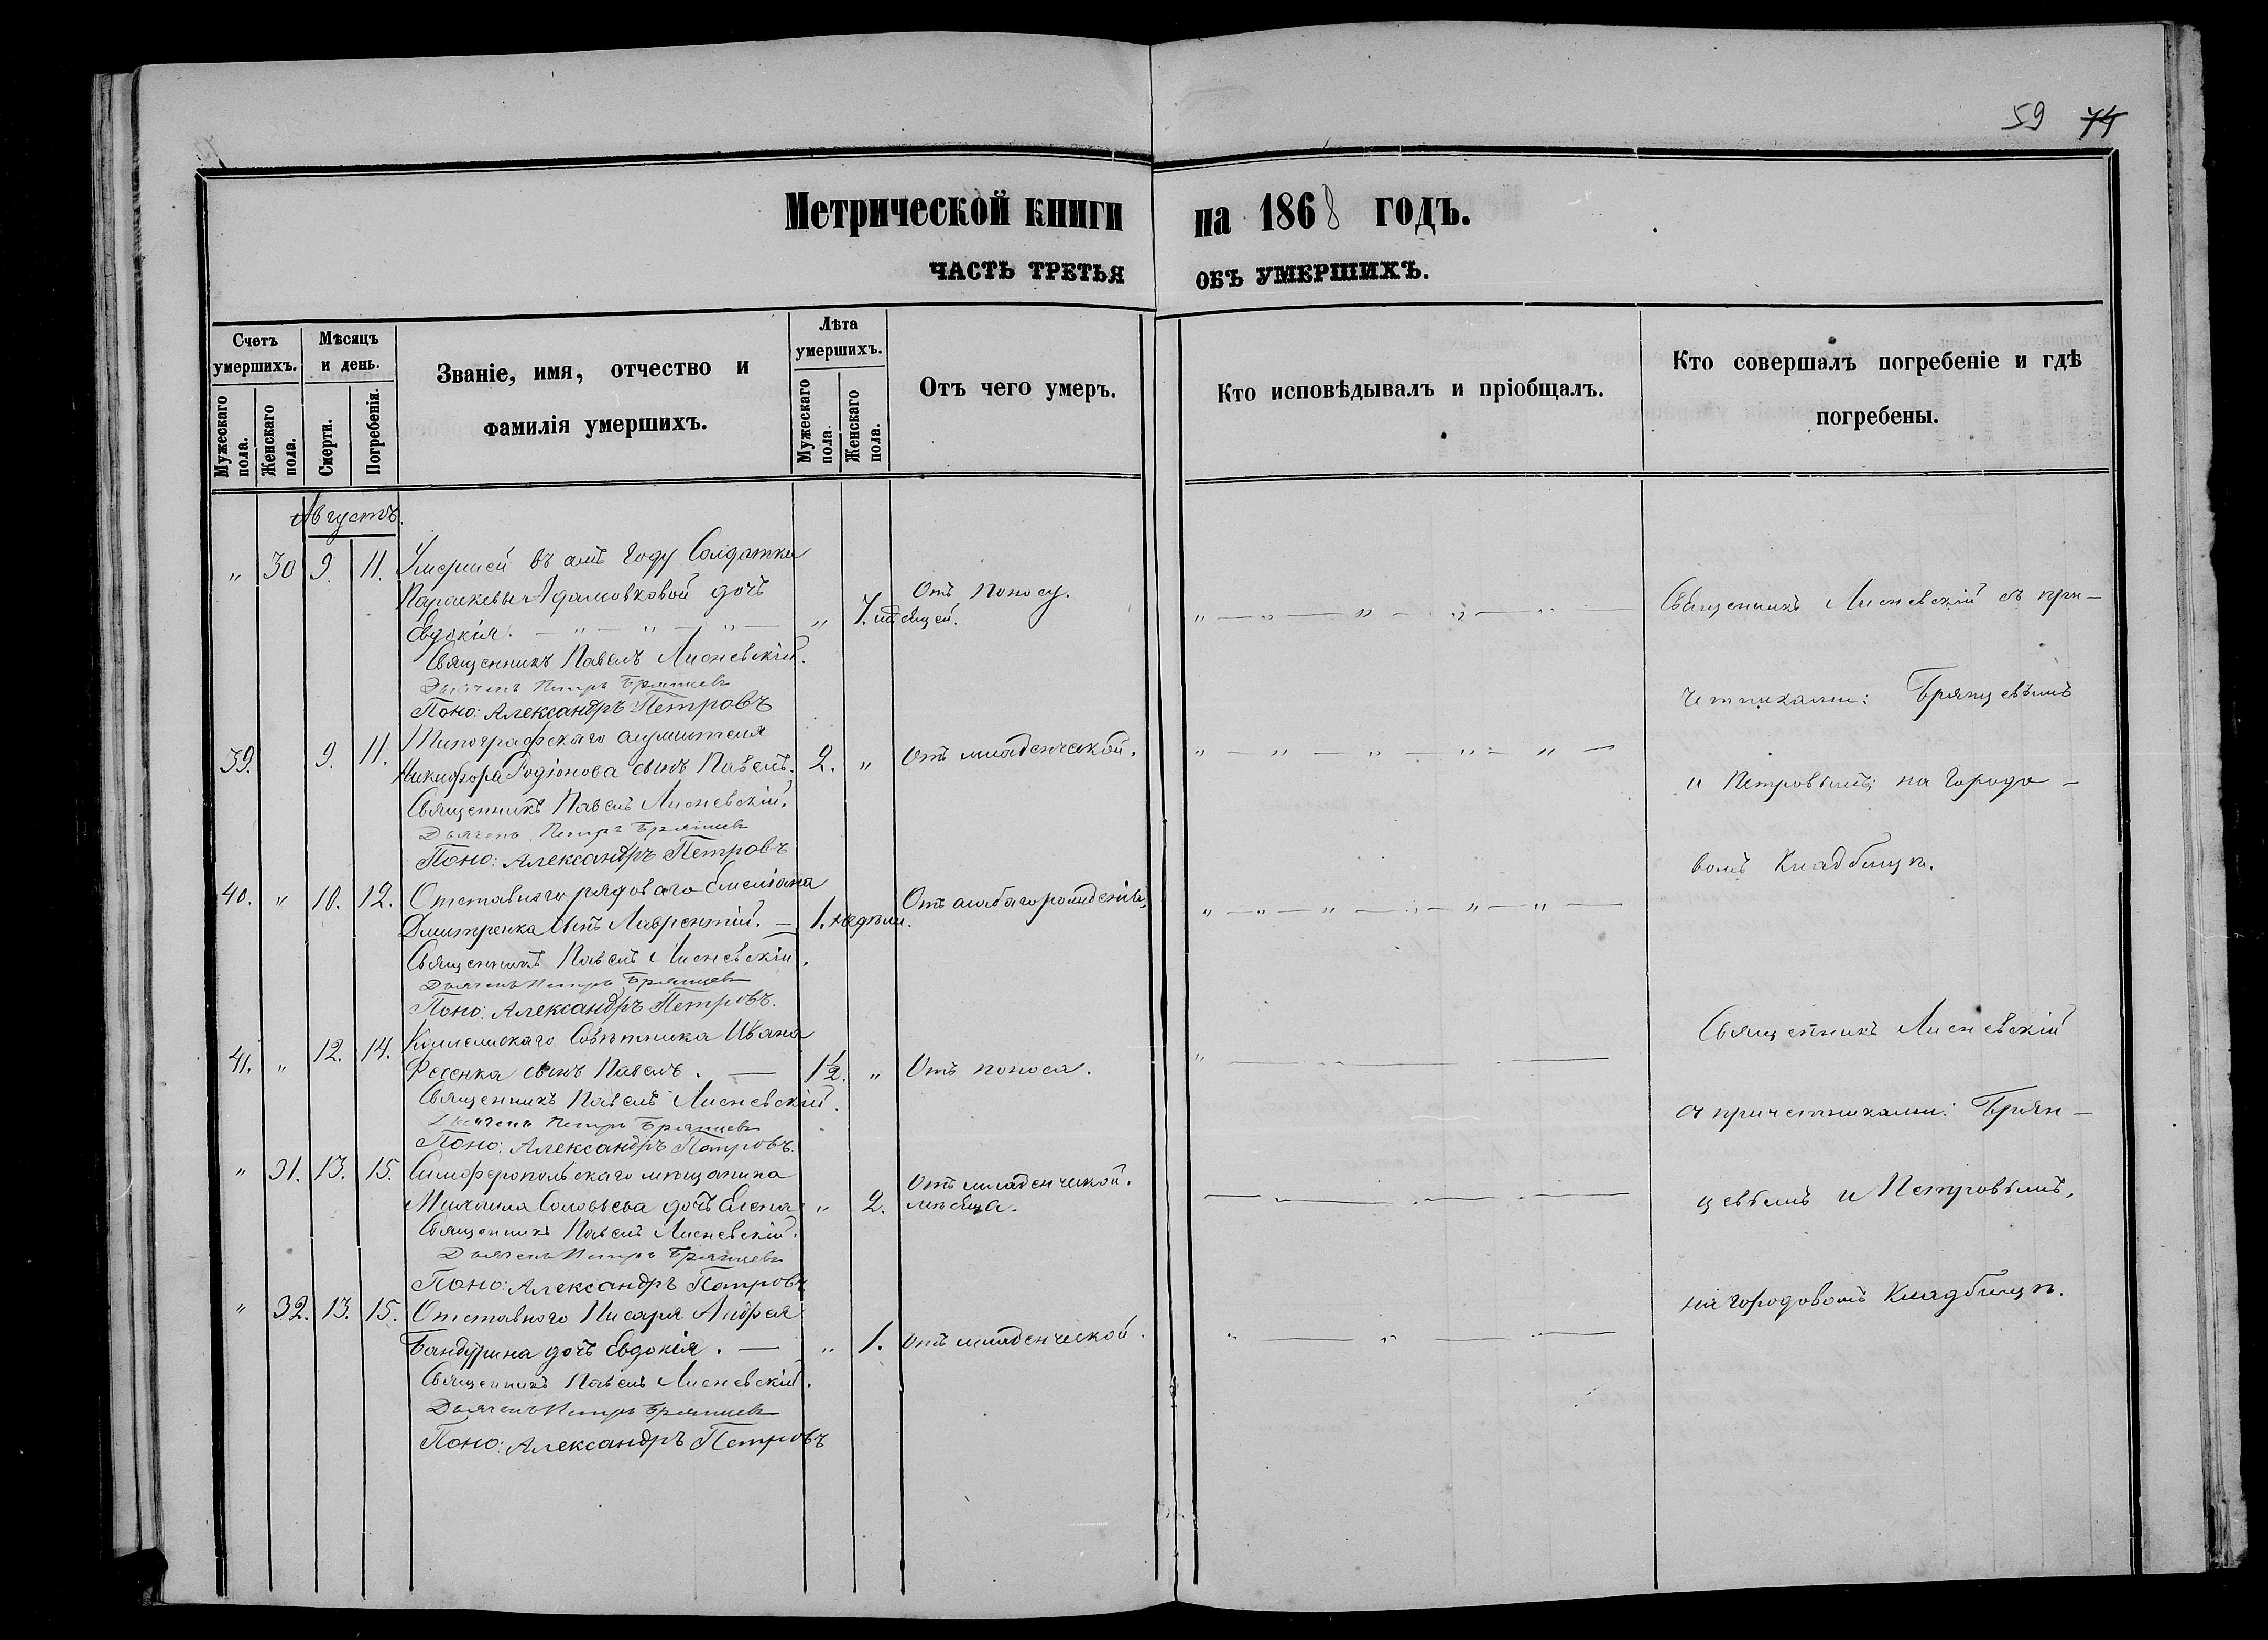 59 74
Метрической книги на 1868 годъ.
ЧАСТЬ ТРЕТЬЯ ОБЪ УМЕРШИХЪ.
Счетъ умершихъ.
Мужескаго пола.
Женскаго пола.
Мѣсяцъ и день.
Смерти.
Погребенія.
Званіе, имя, отчество и
фамилія умершихъ.
Лѣта умершихъ.
Мужескаго пола.
Женскаго пола.
Отъ чего умеръ.
Кто исповѣдывалъ и пріобщалъ.
Кто совершалъ погребеніе и гдѣ
погребены.
Августъ.
" 30 9. 11. Умершей въ семъ году Солдатки
Параскевы Адамовковой дочь Отъ поносу.
Евдокія. " 7. мѣсяцей.
Священникъ Павелъ Лисневскій.
Дьячекъ Петръ Брянцевъ
Поно: Александръ Петровъ
39. 9. 11. Типографскаго служителя
Никифора Родіонова сынъ Павелъ. 2. " Отъ младенческой.
Священникъ Павелъ Лисневскій.
Дьячекъ Петръ Брянцевъ
Поно: Александръ Петровъ
40. " 10. 12. Отставнаго рядоваго Емеліана Отъ слабаго рожденія.
Дмитренка сынъ Лаврентій. — 1. недѣли.
Священникъ Павелъ Лисневскій.
Дьячекъ Петръ Брянцевъ
Поно: Александръ Петровъ.
41. " 12. 14. Совѣтника Ивана
Фесенка сынъ Павелъ. — 1/2. " Отъ поноса.
Священникъ Павелъ Лисневскій.
Дьячекъ Петръ Брянцевъ
Поно: Александръ Петровъ.
" 31. 13. 15. Симферопольскаго мѣщанина Отъ младенческой.
Михаила Соловьева дочь Елена " 2. мѣсяца.
Священникъ Павелъ Лисневскій.
Дьячекъ Петръ Брянцевъ
Поно: Александръ Петровъ
" 32. 13. 15. Отставного Писаря Андрея
Бандурина дочь Евдокія. — " 1. Отъ младенческой.
Священникъ Павелъ Лисневскій.
Дьячекъ Петръ Брянцевъ
Поно: Александръ Петровъ
Священникъ Лисневскій съ при-
четниками: Брянцевымъ
и Петровымъ; на Городо-
вомъ Кладбищѣ.
Священникъ Лисневскій
съ причетниками: Брян-
цевымъ и Петровымъ,
на городовомъ Кладбищѣ.